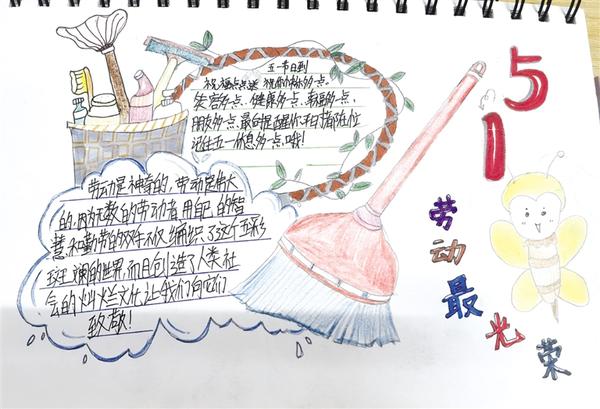 五一节日到
祝福点点送 祝你愉快多一点、
笑容多点、健康多点、幸运多点、
朋友多点、最后提醒你平日都在位
记住五一休息多一点哦!
劳动是神奇的,劳动是伟大
的,因为无数的劳动者用自己的智
慧和勤劳的双手不仅编织了这个五彩
斑斓的世界,而且创造了人类社
会的灿烂文化,让我们向他们
致敬!
51
劳动最光荣